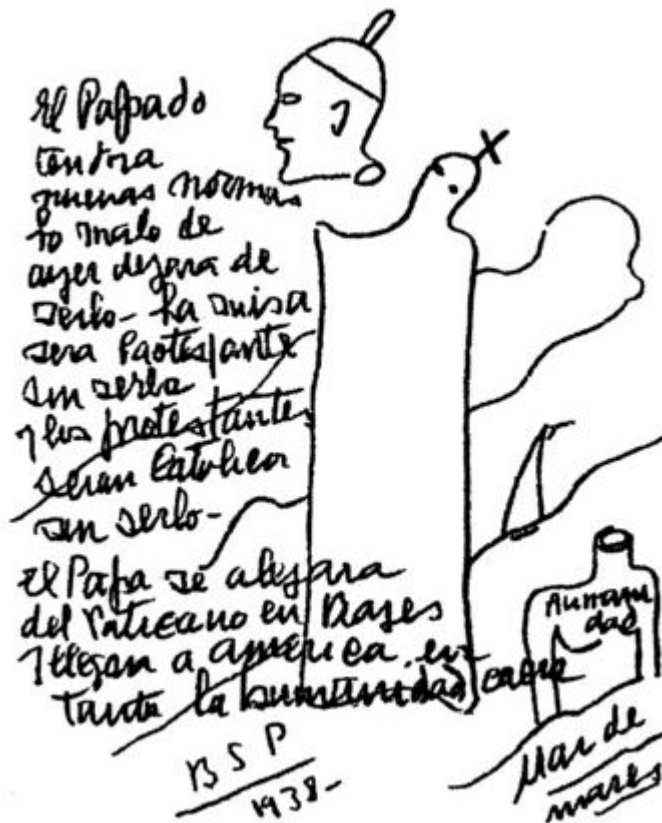 El Papado
tendra
nuevas normas
lo malo de
ayer dejara de
serlo- La misa
sera Protestante
sin serlo
y los protestantes
seran Catolicos
sin serlo-
El Papa se alejara
del Vaticano en viajes
y llegara a America en
tanto la humanidad caera
B S P
1938-
Humani
dad
Mar de
mares